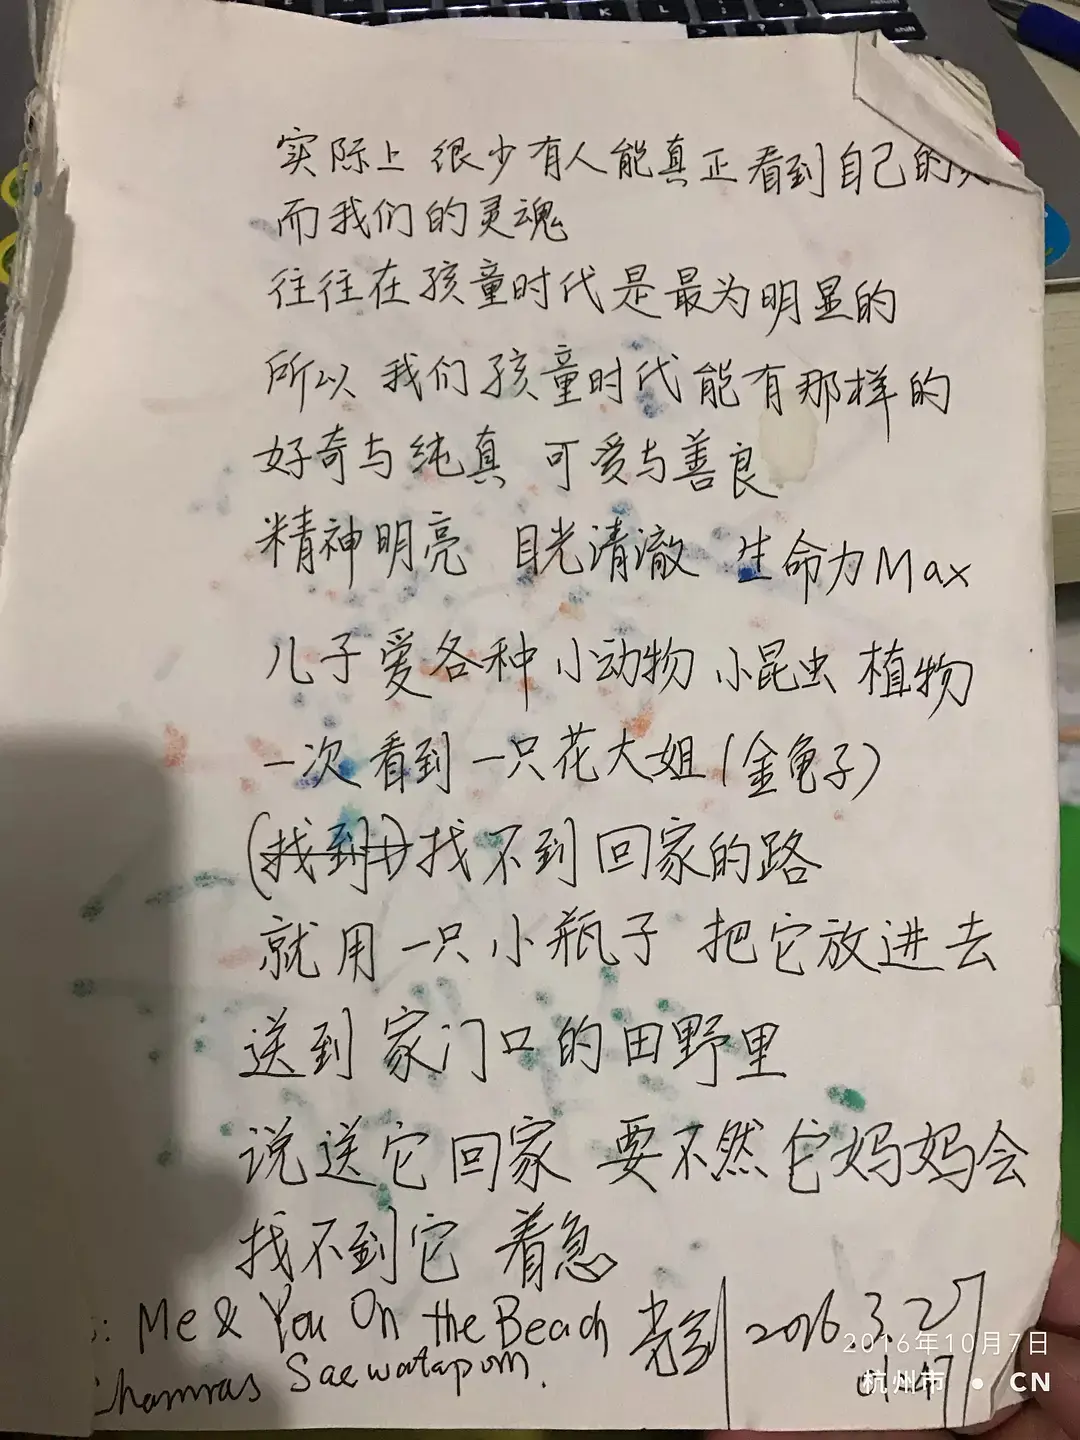 实际上 很少有人能真正看到自己的
而我们的灵魂
往往在孩童时代是最为明显的
所以 我们孩童时代能有那样的
好奇与纯真 可爱与善良
精神明亮 目光清澈 生命力Max
儿子爱各种小动物 小昆虫 植物
一次看到一只花大姐(金龟子)
(找到) 找不到回家的路
就用一只小瓶子 把它放进去
送到家门口的田野里
说送它回家 要不然它妈妈会
找不到它 着急
: Me & You On the Beach 2016.3.27
Chamras Saewatapom.
2016年10月7日
杭州市 • CN